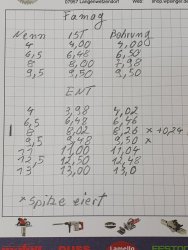 07957 Langenwetzendorf
Famag
Nenn IST Bohrung
4 4,00 4,00
6,5 6,48 6,50
8 8,00 7,98
9,5 9,50 9,50
ENT
4 3,98 4,02
6,5 6,48 6,46
8 8,02 8,26 * 10,24
9,5 9,48 9,50 *
11 11,00 11,04
12,5 12,50 12,48
13 13,00 13,0
* Spitze eiert